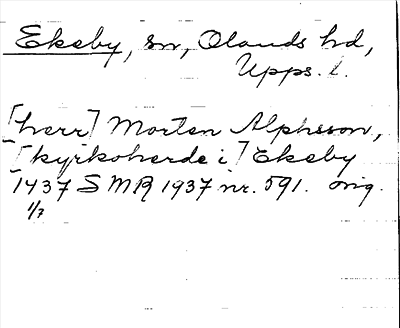 Ekeby, sn, Olands hd,
Upps. l.
[herr] Morten Alphsson,
[kyrkoherde i] Ekeby
1437 SMR 1937 nr. 591. orig.
1/7